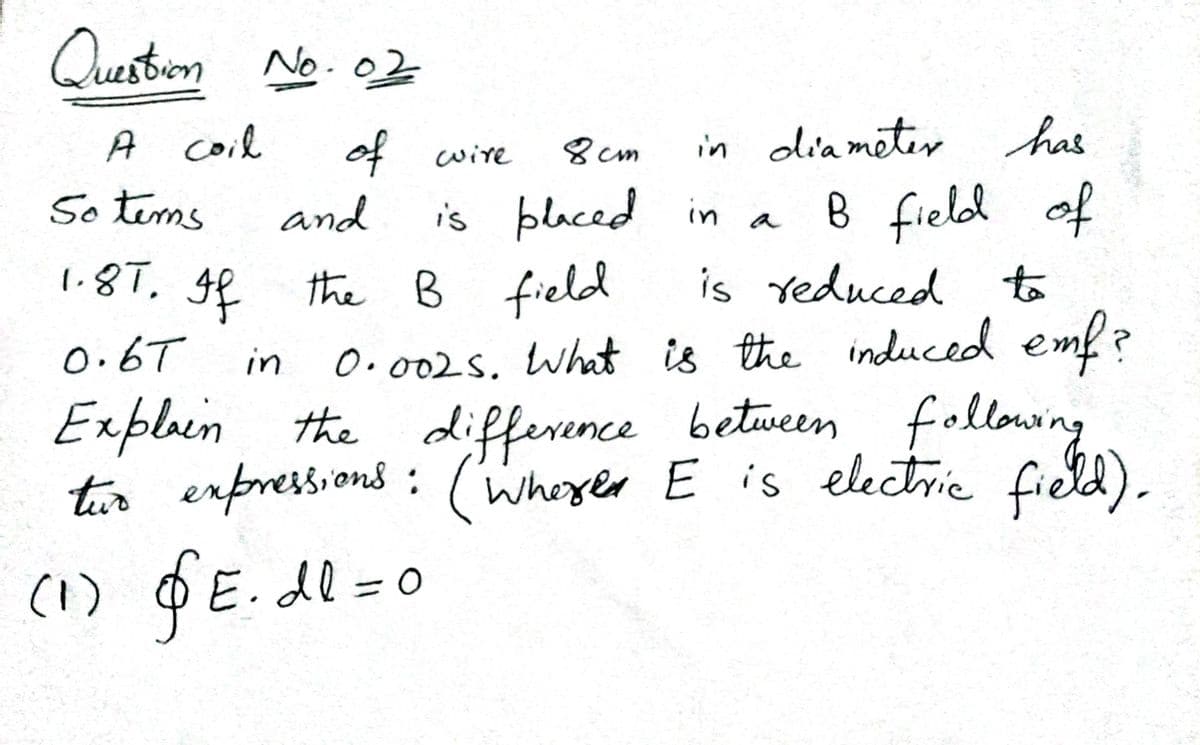 Question No. 02
A coil of wire 8 cm in diameter has
50 turns and is placed in a B field of
1.8T. If the B field is reduced to
0.6T in 0.002s. What is the induced emf?
Explain the difference between following
two expressions: (Where E is electric field).
(1) ∮E.dl = 0